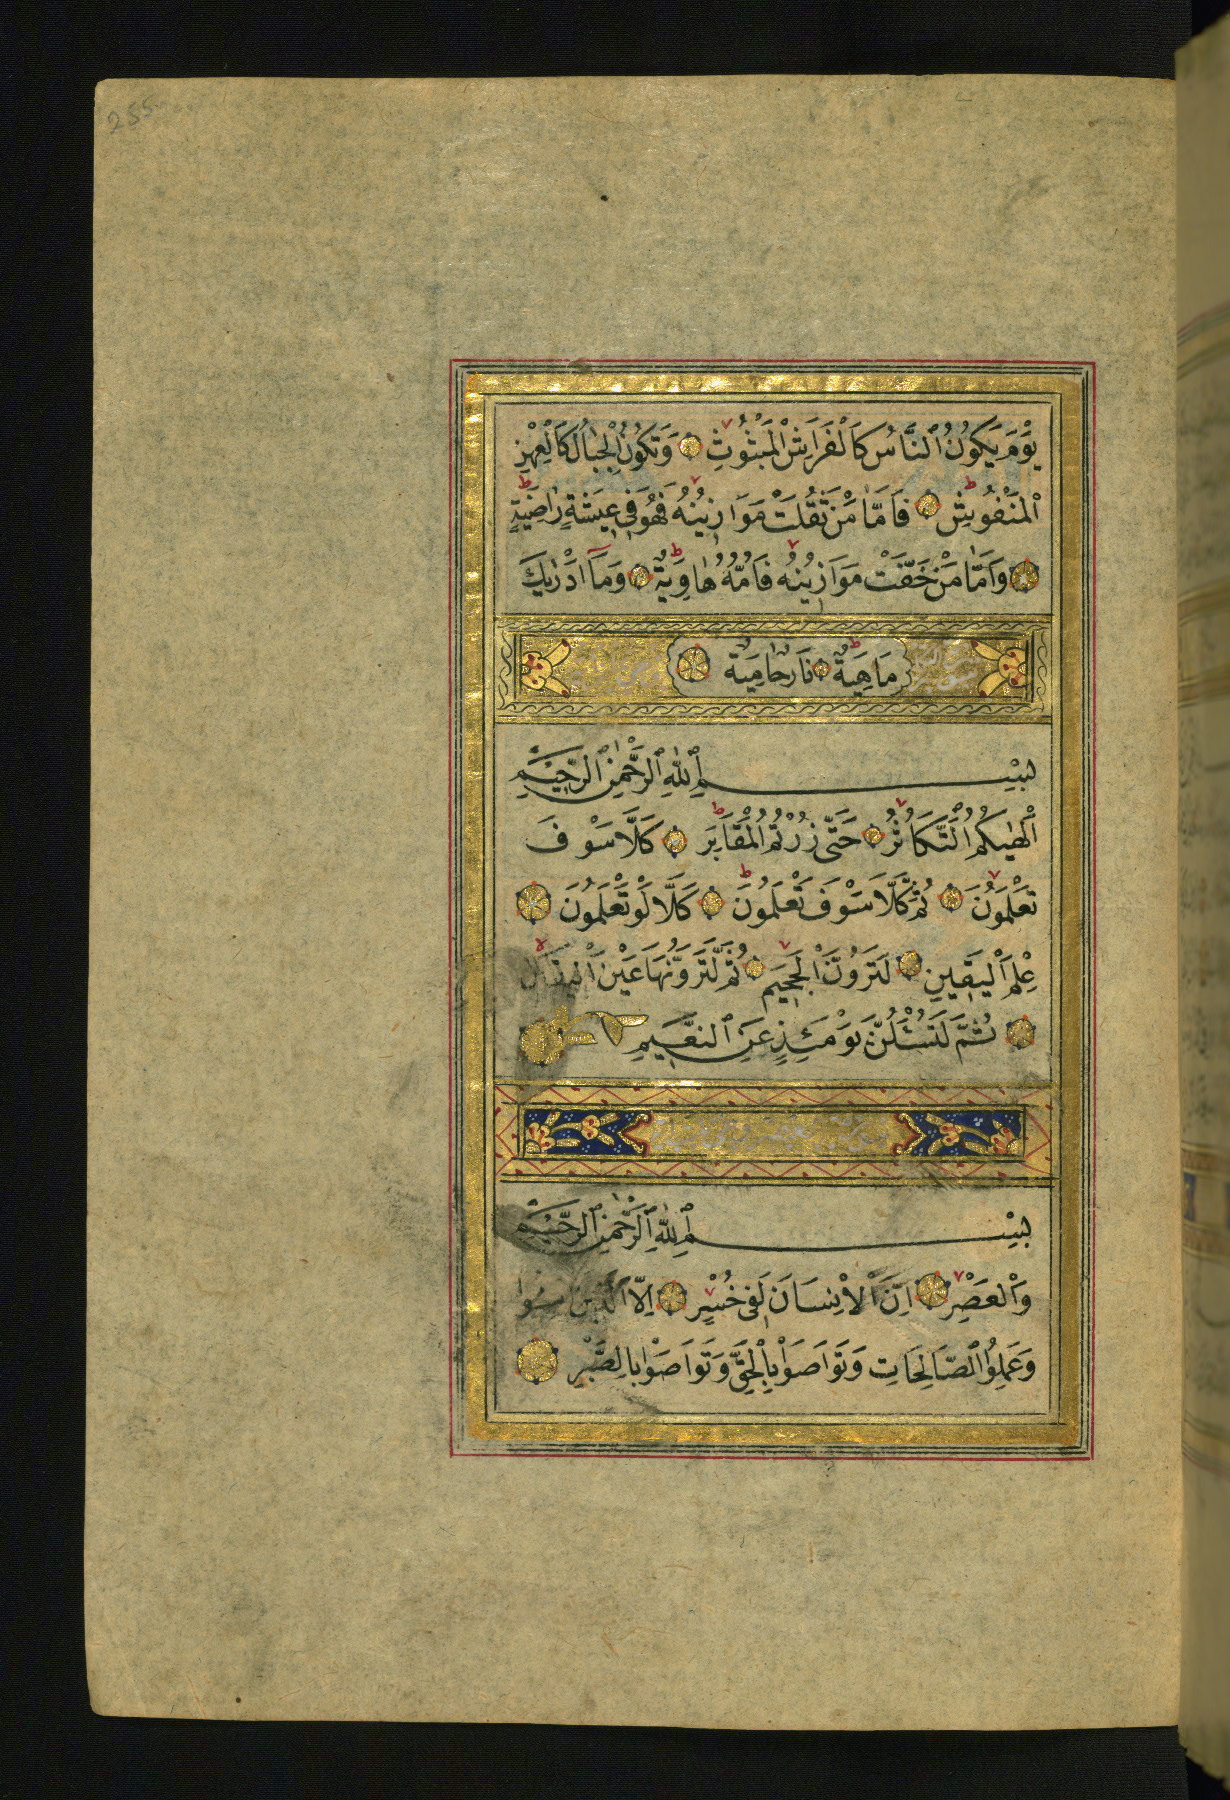 255
يَوْمَ يَكُونُ ٱلنَّاسُ كَالْفَرَاشِ الْمَبْثُوثِ وَتَكُونُ الْجِبَالُ كَالْعِهْنِ
الْمَنْفُوشِ فَاَمَّا مَنْ ثَقُلَتْ مَوَازِينُهُ فَهُوَ فِي عِيشَةٍ رَاضِيَةٍ
وَاَمَّا مَنْ خَفَّتْ مَوَازِينُهُ فَاُمُّهُ هَاوِيَةٌ وَمَآ اَدْرٰيكَ
مَاهِيَةٌ نَارٌ حَامِيَةٌ
بِسْمِ ٱللّٰهِ ٱلرَّحْمٰنِ ٱلرَّحِيمِ
اَلْهٰيكُمُ ٱلتَّكَاثُرُ حَتّٰى زُرْتُمُ الْمَقَابِرَ كَلَّا سَوْفَ
تَعْلَمُونَ ثُمَّ كَلَّا سَوْفَ تَعْلَمُونَ كَلَّا لَوْ تَعْلَمُونَ
عِلْمَ الْيَقِينِ لَتَرَوُنَّ الْجَحِيمَ ثُمَّ لَتَرَوُنَّهَا عَيْنَ الْيَقِينِ
ثُمَّ لَتُسْئَلُنَّ يَوْمَئِذٍ عَنِ ٱلنَّعِيمِ
بِسْمِ ٱللّٰهِ ٱلرَّحْمٰنِ ٱلرَّحِيمِ
وَالْعَصْرِ اِنَّ الْاِنْسَانَ لَفِي خُسْرٍ اِلَّا ٱلَّذِينَ اٰمَنُوا
وَعَمِلُوا ٱلصَّالِحَاتِ وَتَوَاصَوْا بِالْحَقِّ وَتَوَاصَوْا بِالصَّبْرِ